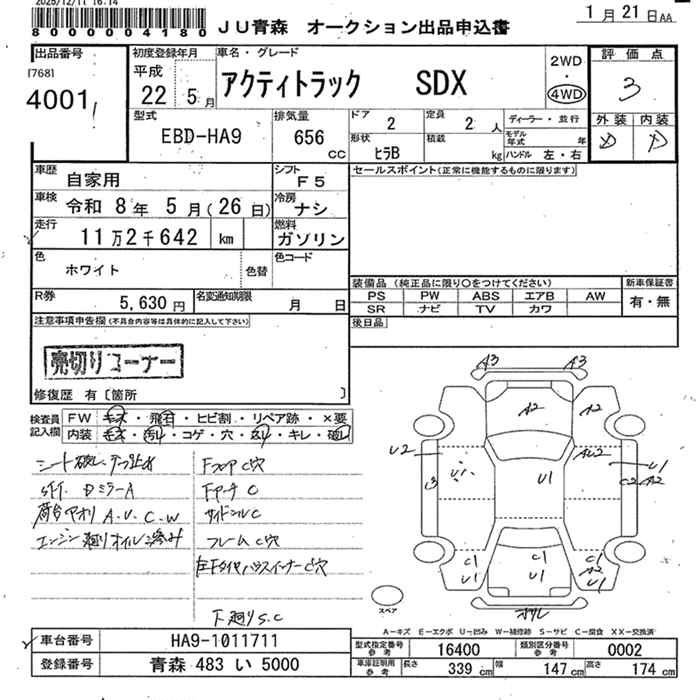 2025/12/11 16:14
8000000004180
JU青森 オークション出品申込書
1月21日AA
出品番号
[768]
4001
初度登録年月
平成
22 5月
車名・グレード
アクティトラック SDX
2WD
・
4WD
評価点
3
外装 内装
型式
EBD-HA9
排気量
656
CC
ドア
2
定員
2 人
形状
ヒラB
積載
kg
ディーラー・並行
モデル年式 年
ハンドル 左・右
車歴
自家用
シフト
F5
セールスポイント(正常に機能するものに限ります)
車検
令和 8年 5月(26日)
冷房
ナシ
走行
11万2千642 km
燃料
ガソリン
色
ホワイト
色替
色コード
装備品 (純正品に限り○をつけてください)
新車保証書
PS PW ABS エアB AW
有・無
SR ナビ TV カワ
R券
5,630円
名変通知期限
月 日
後日品
注意事項申告欄(不具合内容等は具体的に記入して下さい)
売切りコーナー
修復歴 有〔箇所 〕
検査員記入欄
FW キズ・飛石・ヒビ割・リペア跡・×要
内装 キズ・汚れ・コゲ・穴・スリ・キレ・破レ
シート破レ テープ止め
Dミラー A
荷台アオリ A.U.C.W
エンジン廻りオイル滲み
Fフロア C穴
サイドシル C
フレーム C穴
下廻り S.C
A3 A3
A2 A2
U2 U1 U1 AU2 U1
C2 A2
C1 U1
C1 U1
C1 A2 U1
スペア
A-キズ E-エクボ U-凹み W-補修跡 S-サビ C-腐食 XX-交換済
車台番号
HA9-1011711
型式指定番号
参考
16400
類別区分番号
参考
0002
登録番号
青森 483 い 5000
車庫証明用
参考
長さ 339 cm 幅 147 cm 高さ 174 cm